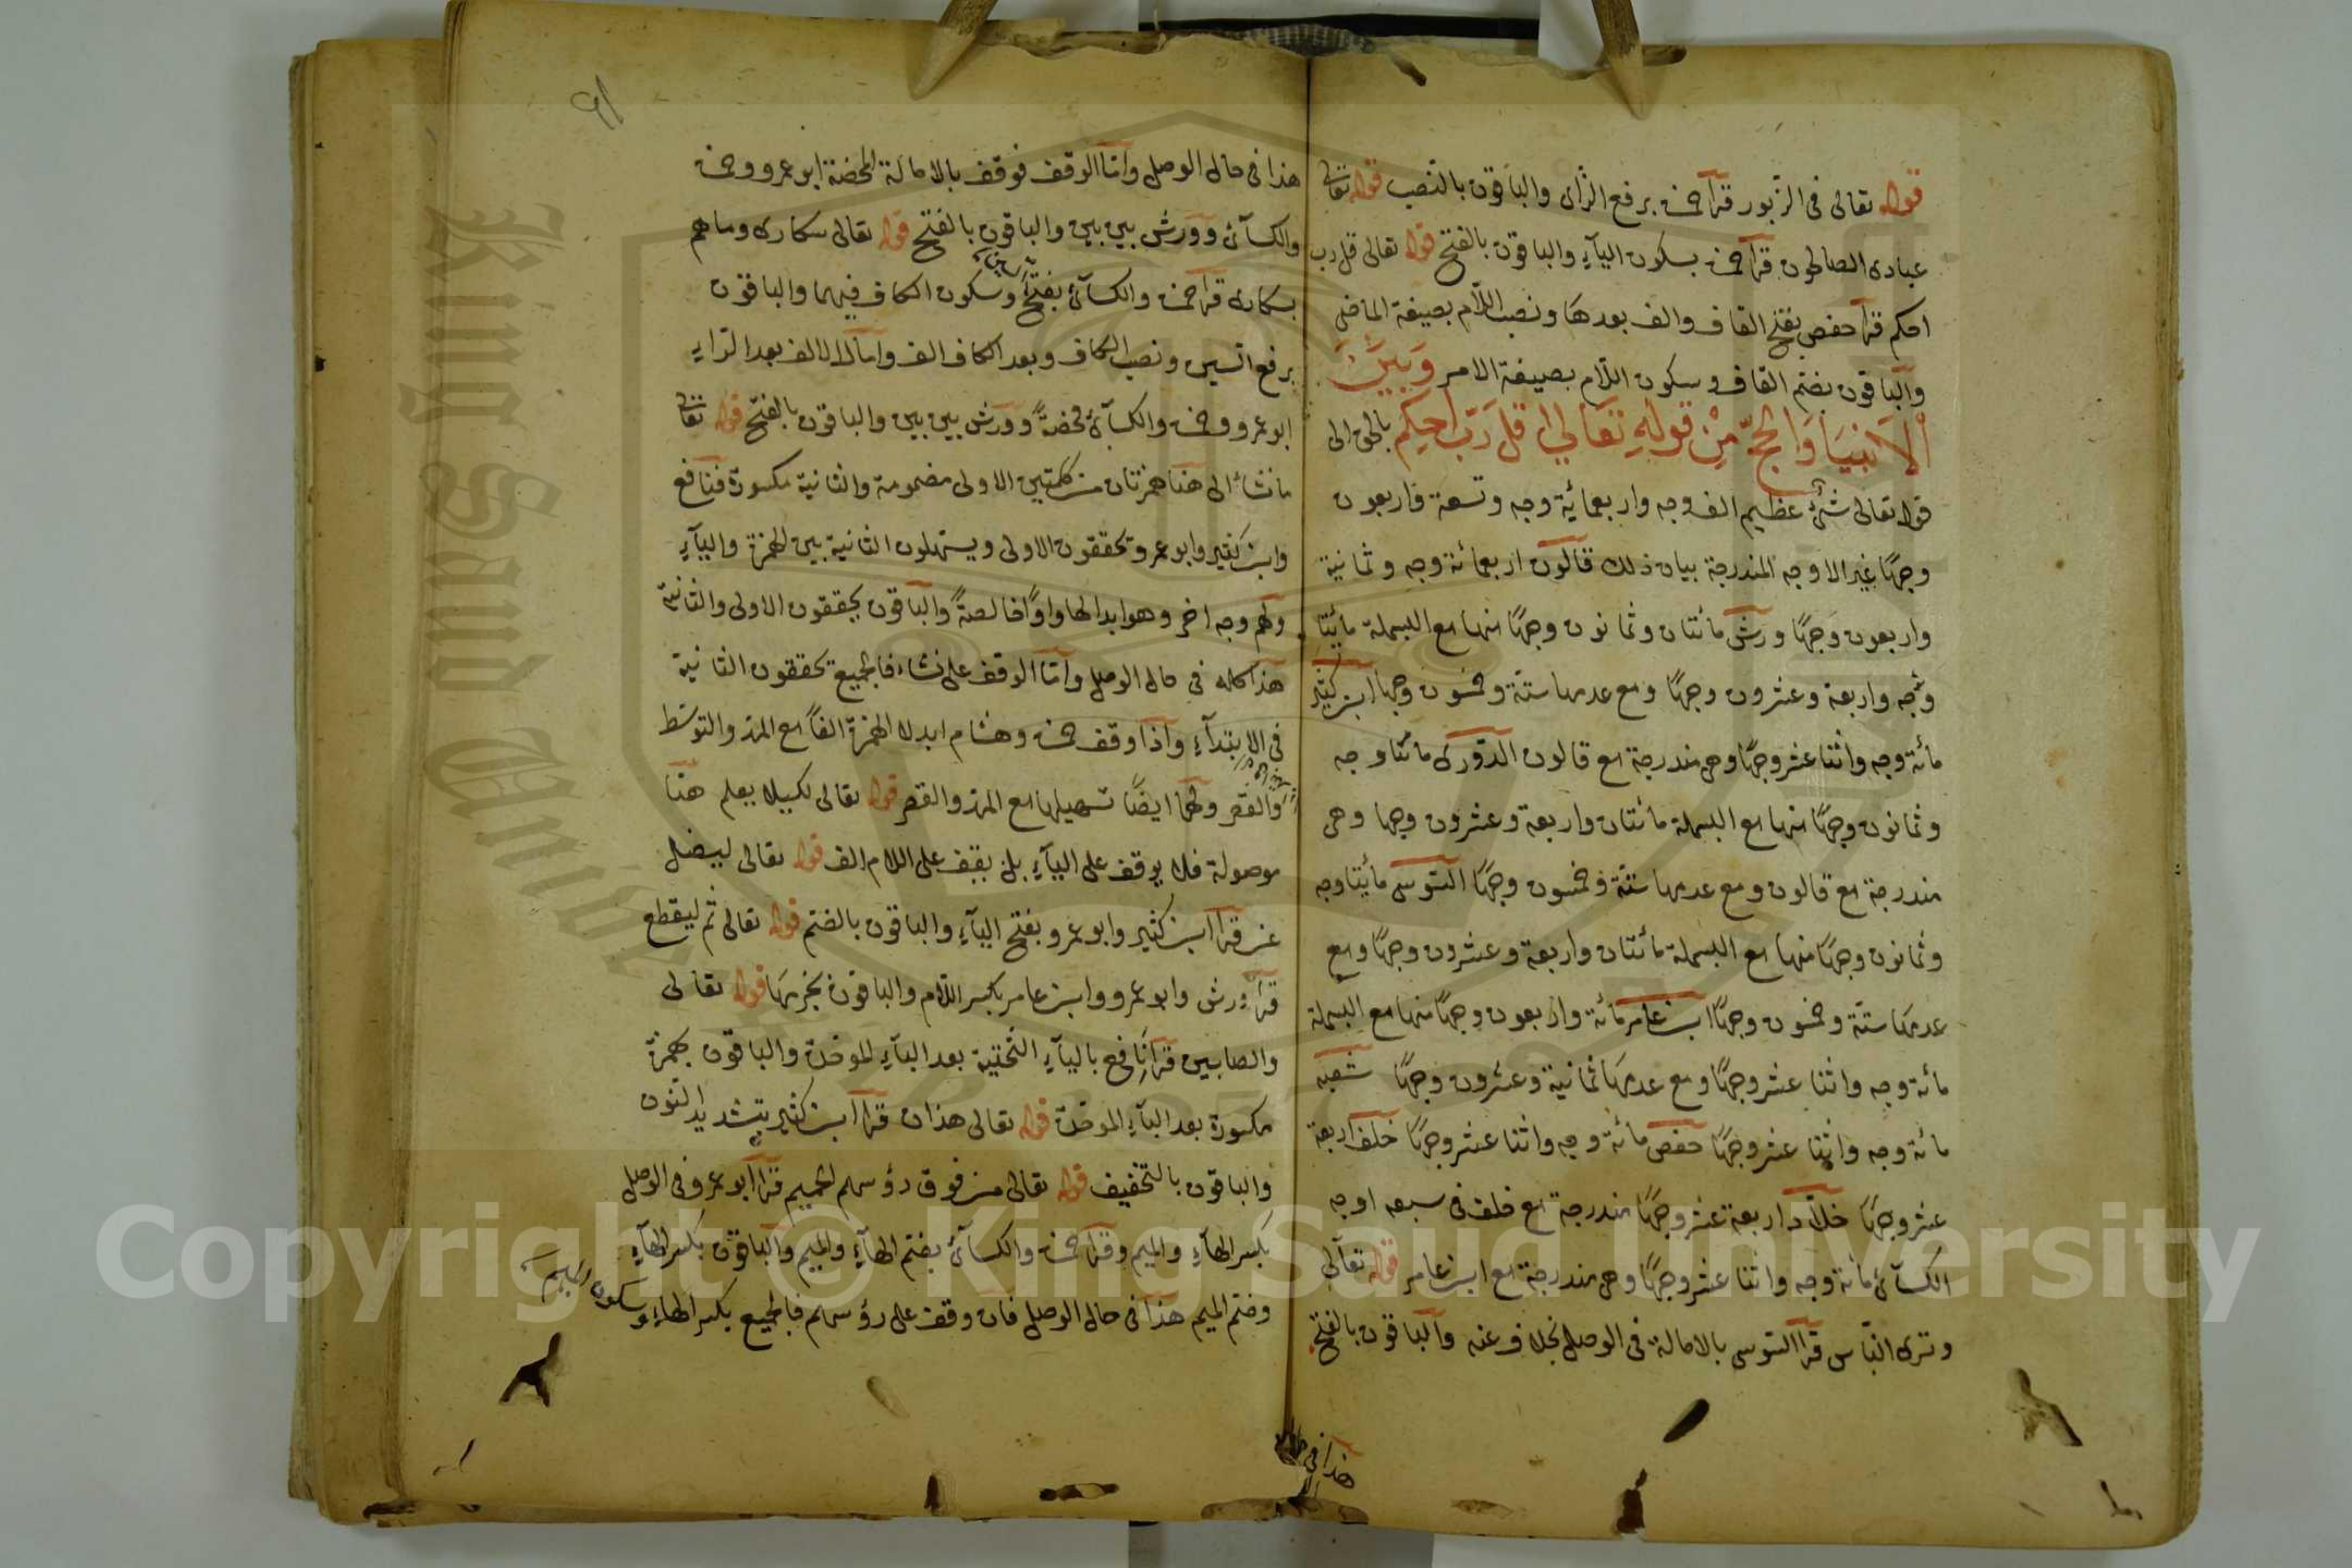 قوله تعالى فى الزّبور قرأ حمزة برفع الزّاى والباقون بالنصب قوله تعالى
عبادى الصالحون قرأ حمزة بسكون اليآء والباقون بالفتح قوله تعالى قل رب
احكم قرأ حفص بفتح القاف والف بعدها ونصب اللّام بصيغة الماضى
والباقون بضم القاف وسكون اللّام بصيغة الامر وَبَيْنَ
اْلاَنبيَا وَالحجّ مِنْ قولِهِ تعَالي قلَ رَبّ احكم بالحق الى
قوله تعالى شئ عظيم الف وجه واربعمائة وجه وتسعة واربعون
وجهًا غير الاوجه المندرجة بيان ذلك قالون اربعمائة وجه وثمانية
واربعون وجهًا ورش مائتان وثمانون وجهًا منها مع البسملة مائتا
وجه واربعة وعشرون وجهًا ومع عدمها ستّة وخمسون وجها ابن كثير
مائة وجه واثنا عشر وجهًا وهى مندرجة مع قالون الدّورى مائتا وجه
وثمانون وجهًا منها مع البسملة مائتان واربعة وعشرون وجها وهى
مندرجة مع قالون ومع عدمها ستّة وخمسون وجهًا السّوسى مائتا وجه
وثمانون وجهًا منها مع البسملة مائتان واربعة وعشرون وجهًا ومع
عدمها ستّة وخمسون وجهًا ابن عامر مائة واربعون وجهًا منها مع البسملة
مائة وجه واثنا عشر وجهًا ومع عدمها ثمانية وعشرون وجهًا شعبه
مائة وجه واثنا عشر وجهًا حفص مائة وجه واثنا عشر وجهًا خلف اربعة
عشر وجهًا خلّاد اربعة عشر وجهًا مندرجة مع خلف فى سبعه اوجه
الكسآئى مائة وجه واثنا عشر وجهًا وهى مندرجة مع ابن عامر قوله تعالى
وترى النّاس قرأ السّوسى بالامالة فى الوصل بخلاف عنه والباقون بالفتح
هذا فى حال
٩١
هذا فى حال الوصل وامّا الوقف فوقف بالامالة المحضة ابو عمرو وحمزة
والكسآئى وورش بين بين والباقون بالفتح قوله تعالى سكارى وما هم
بسكارى قرأ حمزة والكسآئى بفتح السين وسكون الكاف فيهما والباقون
برفع السين ونصب الكاف وبعد الكاف الف وامال الالف بعد الرّاء
ابو عمرو وحمزة والكسآئى محضةً وورش بين بين والباقون بالفتح قوله تعالى
ما نشاء الى هنا همزتان من كلمتين الاولى مضمومة والثانية مكسورة فنافع
وابن كثير وابو عمرو يحققون الاولى ويسهلون الثانية بين الهمزة واليآء
ولهم وجه اخر وهو ابدالها واوًا خالصةً والباقون يحققون الاولى والثانية
هذا كله فى حال الوصل وامّا الوقف على نشاء فالجميع يحققون الثانية
فى الابتدآء واذا وقف حمزة وهشام ابدلا الهمزة الفًا مع المد والتوسّط
والقصر ولهما ايضًا تسهيلها مع المد والقصر قوله تعالى لكيلا يعلم هنا
موصولة فلا يوقف على اليآء بل يقف على اللام الف قوله تعالى ليضل
عن قرأ ابن كثير وابو عمرو بفتح اليآء والباقون بالضم قوله تعالى ثم ليقطع
قرأ ورش وابو عمرو وابن عامر بكسر اللّام والباقون بجزمها قوله تعالى
والصابين قرأ نافع باليآء التحتية بعد البآء الموحّدة والباقون بهمزة
مكسورة بعد البآء الموحّدة قوله تعالى هذان قرأ ابن كثير بتشديد النّون
والباقون بالتخفيف قوله تعالى من فوق رؤسهم الحميم قرأ ابو عمرو فى الوصل
بكسر الهآء والميم وقرأ حمزة والكسآئى بضم الهآء والميم والباقون بكسر الهآء
وضم الميم هذا فى حال الوصل فان وقف على رؤسهم فالجميع بكسر الهاء وسكون الميم
King Saud University
Copyright © King Saud University